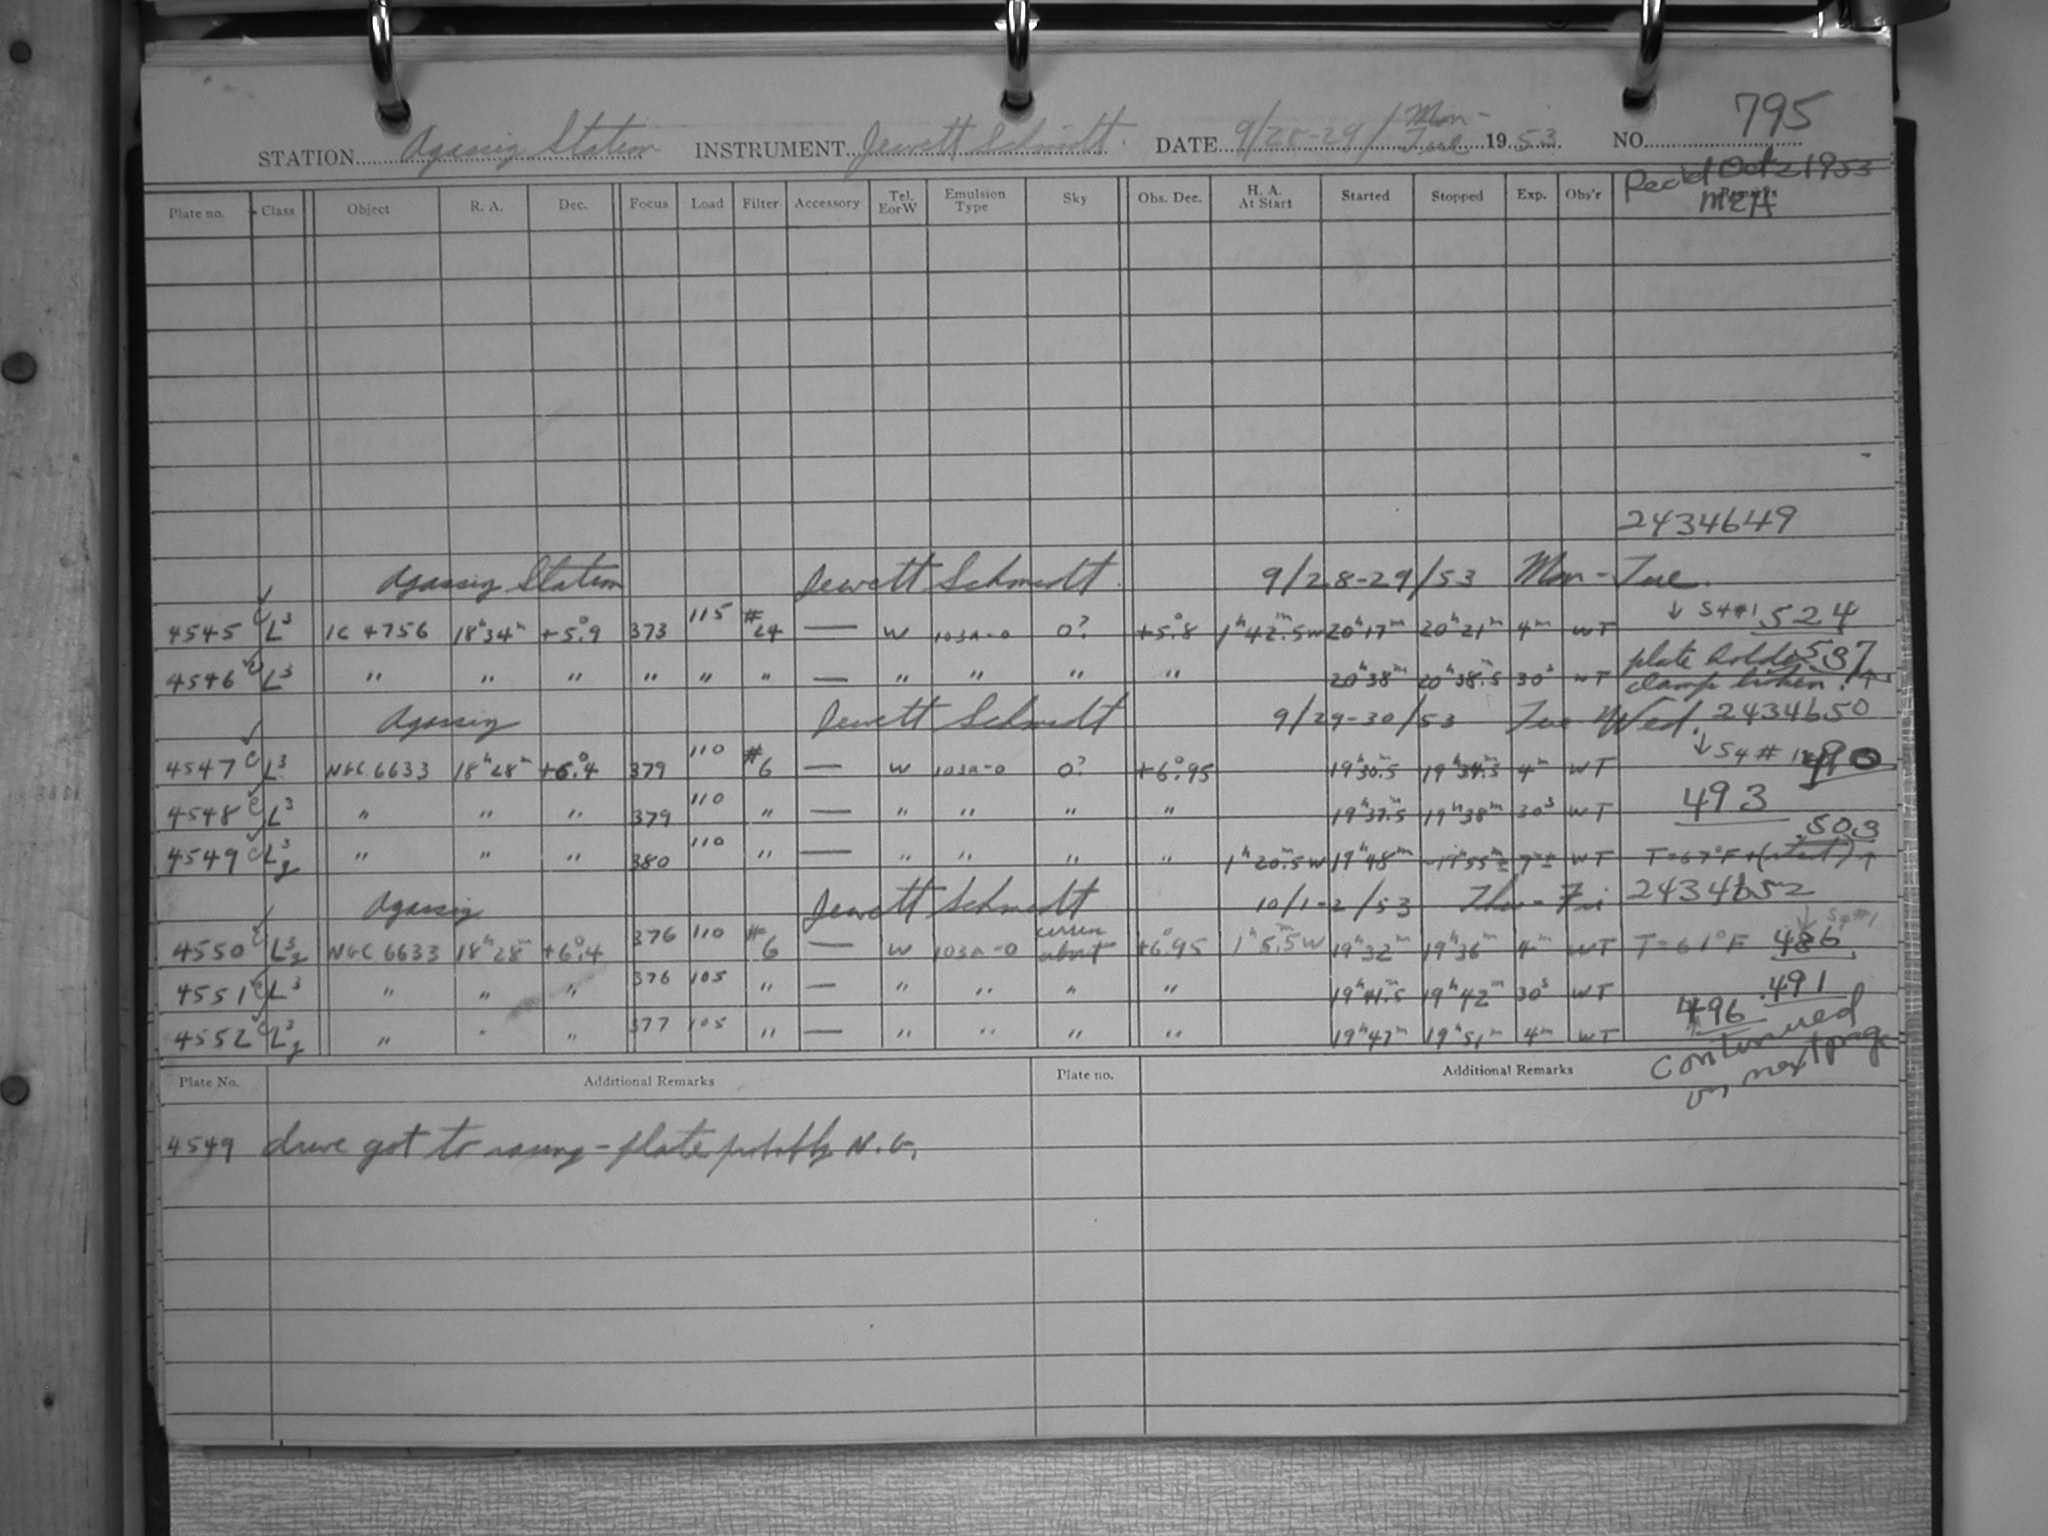 795
STATION Agassiz Station INSTRUMENT Jewett Schmidt. DATE 9/28-29/ Mon-Tue 1953. NO.
Rec'd Oct 2 1953
Plate no. Class Object R. A. Dec. Focus Load Filter Accessory Tel. E or W Emulsion Type Sky Obs. Dec. H. A. At Start Started Stopped Exp. Obs'r Remarks
2434649
Agassiz Station Jewett Schmidt. 9/28-29/53 Mon-Tue.
↓ S4#1 .524
4545 C L3 IC 4756 18h34m +5°.9 373 115 #24 — W 103a-O 0? +5°.8 1h42m.5W 20h17m 20h21m 4m WT
4546 C L3 " " " " " " — " " " " 20h38m 20h38m.5 30s WT plate holder .537 clamp broken. ↑
Agassiz Jewett Schmidt 9/29-30/53 Tue Wed. 2434650
↓ S4 #1
4547 C L3 NGC 6633 18h28m +6°.4 379 110 #6 — W 103a-O 0? +6°.95 19h30m.5 19h34m.5 4m WT
4548 C L3 " " " 379 110 " — " " " " 19h37m.5 19h38m 30s WT 493
.503
4549 C L3g " " " 380 110 " — " " " " 1h20m.5W 19h48m 19h55m± 7m± WT T=67°F (start) ↑
Agassiz Jewett Schmidt 10/1-2/53 Thu-Fri 2434652
↓ S4#1
4550 C L3g NGC 6633 18h28m +6°.4 376 110 #6 — W 103a-O cirrus about +6°.95 1h5m.5W 19h32m 19h36m 4m WT T=61°F 486
4551 C L3 " " " 376 105 " — " " " " 19h41m.5 19h42m 30s WT .491
4552 C L3g " " " 377 105 " — " " " " 19h47m 19h51m 4m WT 496
Continued on next page
Plate No. Additional Remarks Plate no. Additional Remarks
4549 drive got to racing - plate probably N.G.